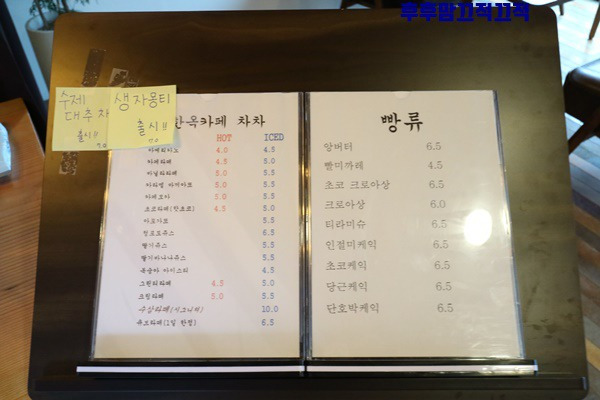 후후맘끄적끄적
수제
대추차
출시!!
7.0
생 자몽티
출시!!
7.0
한옥카페 차차
HOT ICED
아메리카노 4.0 4.5
카페라떼 4.5 5.0
바닐라라떼 5.0 5.5
카라멜 마끼아또 5.0 5.5
카페모카 5.0 5.5
초코라떼(핫초코) 4.5 5.0
아포가토 5.5
청포도쥬스 6.5
딸기쥬스 5.5
딸기바나나쥬스 5.5
복숭아 아이스티 4.5
그린티라떼 4.5 5.0
크림라떼 5.0 5.5
수삼라떼(시그니처) 10.0
큐브라떼(1일 한정) 6.5
빵류
앙버터 6.5
빨미까레 4.5
초코 크로아상 6.5
크로아상 6.0
티라미슈 6.5
인절미케익 6.5
초코케익 6.5
당근케익 6.5
단호박케익 6.5